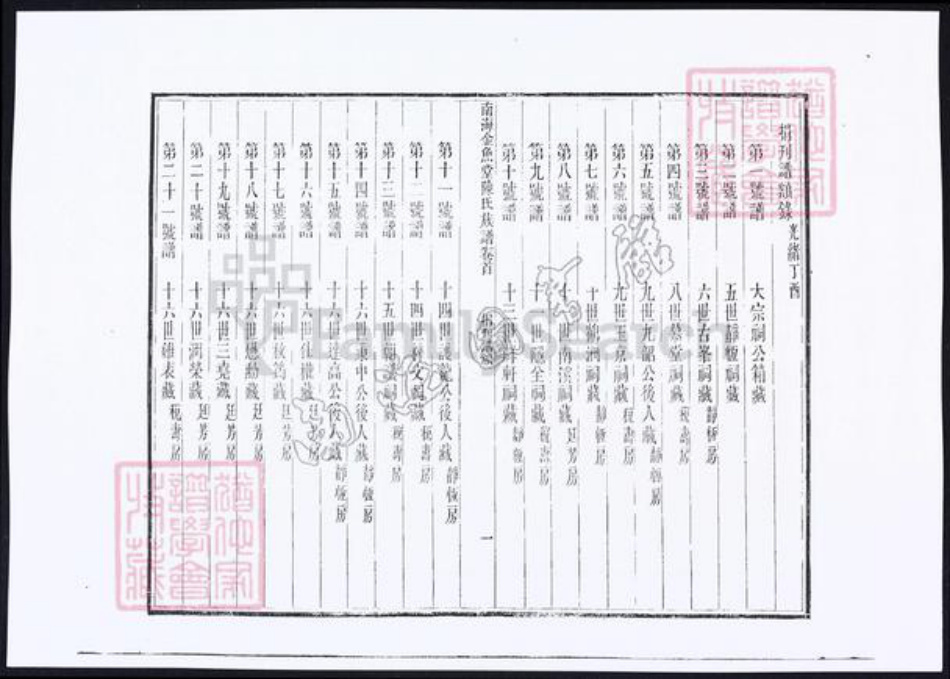 捐刊譜額錄 光緒丁酉
第一號譜 大宗祠公箱藏
第二號譜 五世靜恆祠藏
第三號譜 六世右峯祠藏 靜恆房
第四號譜 八世慕堂祠藏 秘壽房
第五號譜 九世光韶公後人藏 靜恆房
第六號譜 九世玉泉祠藏 秘壽房
第七號譜 十世鶴洲祠藏 靜恆房
第八號譜 十世南溪祠藏 廷芳房
第九號譜 世隱全祠藏 秘壽房
第十號譜 十三世軒祠藏 靜恆房
南海金魚堂陳氏族譜卷首
一
第十一號譜 十四世公後人藏 靜恆房
第十二號譜 十四世文祠藏 秘壽房
第十三號譜 十五世祠藏 秘壽房
第十四號譜 十六世東中公後人藏 靜恆房
第十五號譜 十六世達高公後人藏 靜恆房
第十六號譜 十六世藏 廷芳房
第十七號譜 十六世藏 廷芳房
第十八號譜 十六世懋勳藏 廷芳房
第十九號譜 十六世三堯藏 廷芳房
第二十號譜 十六世潤榮藏 廷芳房
第二十一號譜 十六世雄表藏 秘壽房
FamilySearch